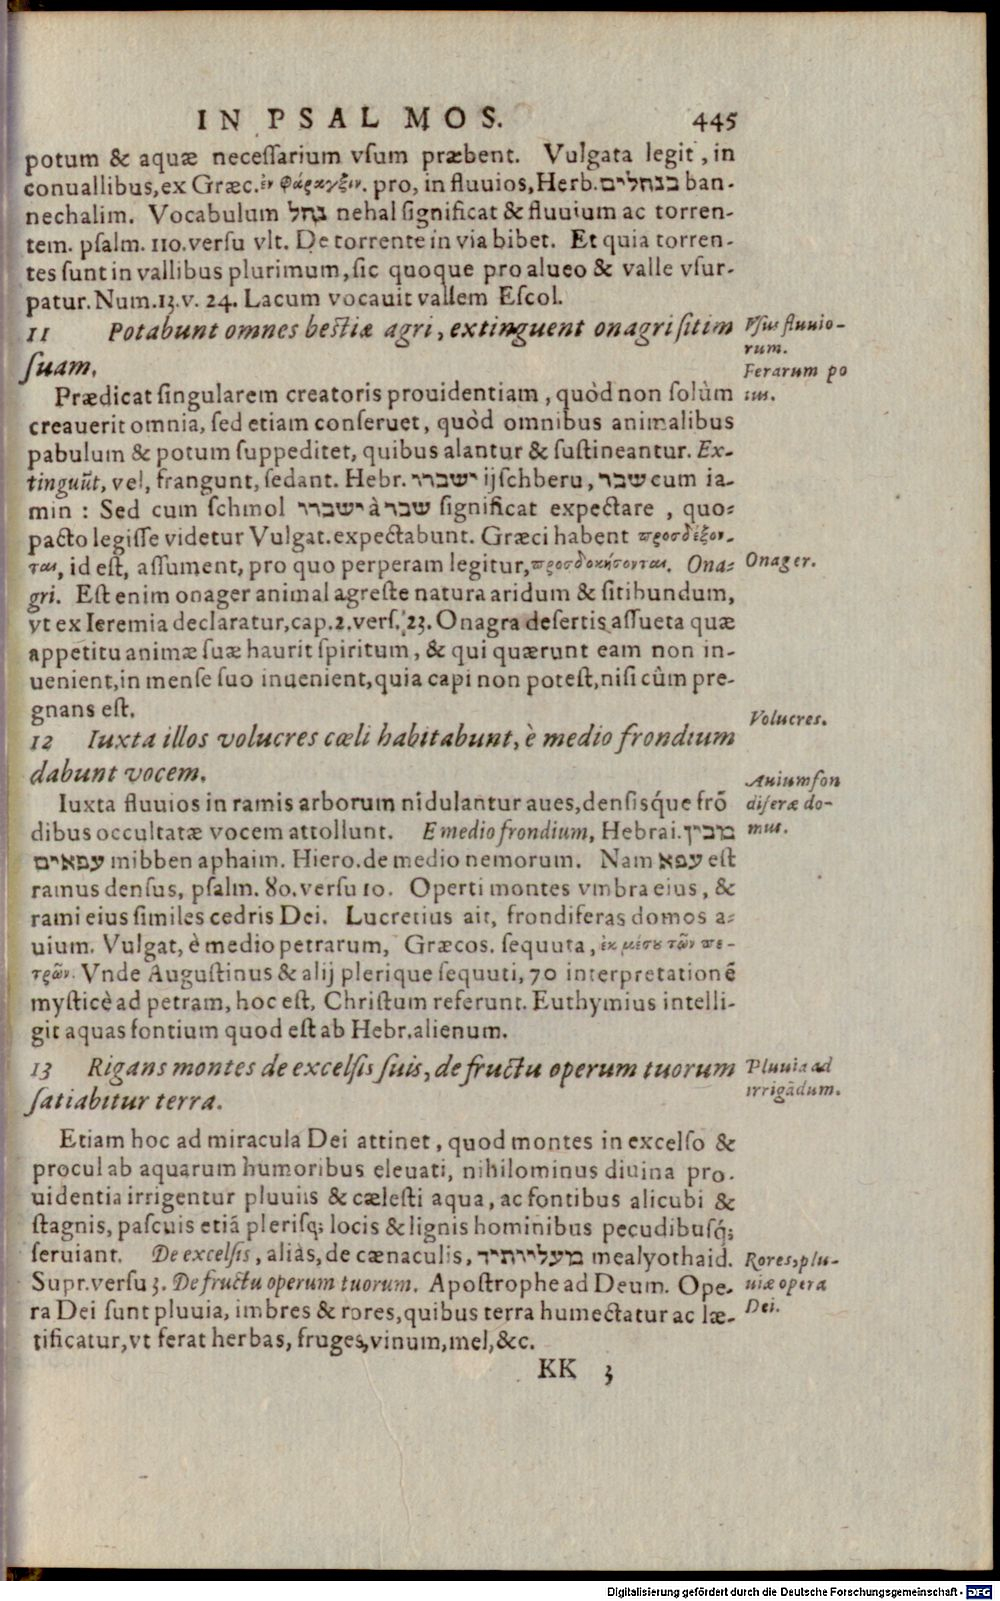 IN PSALMOS. 445
potum & aquæ necessarium vsum præbent. Vulgata legit, in
conuallibus, ex Græc. ἐν φάραγξιν. pro, in fluuios, Herb. בנחלים ban-
nechalim. Vocabulum נחל nehal significat & fluuium ac torren-
tem. psalm. 110. versu vlt. De torrente in via bibet. Et quia torren-
tes sunt in vallibus plurimum, sic quoque pro alueo & valle vsur-
patur. Num. 13. v. 24. Lacum vocauit vallem Escol.
11 Potabunt omnes bestiæ agri, extinguent onagri sitim
suam.
Vsus fluuio-
rum.
Ferarum po
tus.
Prædicat singularem creatoris prouidentiam, quòd non solùm
creauerit omnia, sed etiam conseruet, quòd omnibus animalibus
pabulum & potum suppeditet, quibus alantur & sustineantur. Ex-
tinguũt, vel, frangunt, sedant. Hebr. ישברו ijschberu, שבר cum ia-
min: Sed cum schmol ישברו à שבר significat expectare, quo-
pacto legisse videtur Vulgat. expectabunt. Græci habent προσδέξον-
ται, id est, assument, pro quo perperam legitur, προσδοκήσονται. Ona-
Onager.
gri. Est enim onager animal agreste natura aridum & sitibundum,
vt ex Ieremia declaratur, cap. 2. vers. 23. Onagra desertis assueta quæ
appetitu animæ suæ haurit spiritum, & qui quærunt eam non in-
uenient, in mense suo inuenient, quia capi non potest, nisi cûm pre-
gnans est.
12 Iuxta illos volucres cœli habitabunt, è medio frondium
dabunt vocem.
Volucres.
Iuxta fluuios in ramis arborum nidulantur aues, densisq́ue frõ
dibus occultatæ vocem attollunt. E medio frondium, Hebrai. מבין
Auium fon
diferæ do-
mus.
עפאים mibben aphaim. Hiero. de medio nemorum. Nam עפא est
ramus densus, psalm. 80. versu 10. Operti montes vmbra eius, &
rami eius similes cedris Dei. Lucretius ait, frondiferas domos a-
uium. Vulgat, è medio petrarum, Græcos. sequuta, ἐκ μέσου τῶν πε-
τρῶν. Vnde Augustinus & alij plerique sequuti, 70 interpretationẽ
mysticè ad petram, hoc est, Christum referunt. Euthymius intelli-
git aquas fontium quod est ab Hebr. alienum.
13 Rigans montes de excelsis suis, de fructu operum tuorum
satiabitur terra.
Pluuia ad
irrigãdum.
Etiam hoc ad miracula Dei attinet, quod montes in excelso &
procul ab aquarum humoribus eleuati, nihilominus diuina pro-
uidentia irrigentur pluuiis & cælesti aqua, ac fontibus alicubi &
stagnis, pascuis etiã plerisq; locis & lignis hominibus pecudibusq́;
seruiant. De excelsis, aliàs, de cænaculis, מעליותיד mealyothaid.
Supr. versu 3. De fructu operum tuorum. Apostrophe ad Deum. Ope-
ra Dei sunt pluuia, imbres & rores, quibus terra humectatur ac læ-
tificatur, vt ferat herbas, fruges, vinum, mel, &c.
Rores, plu-
uiæ opera
Dei.
KK 3
Digitalisierung gefördert durch die Deutsche Forschungsgemeinschaft - DFG